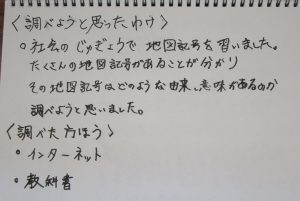 〈調べようと思ったわけ〉
○社会のじゅぎょうで地図記号を習いました。
たくさんの地図記号があることが分かり
その地図記号はどのような由来、意味があるのか
調べようと思いました。
〈調べた方ほう〉
・インターネット
・教科書